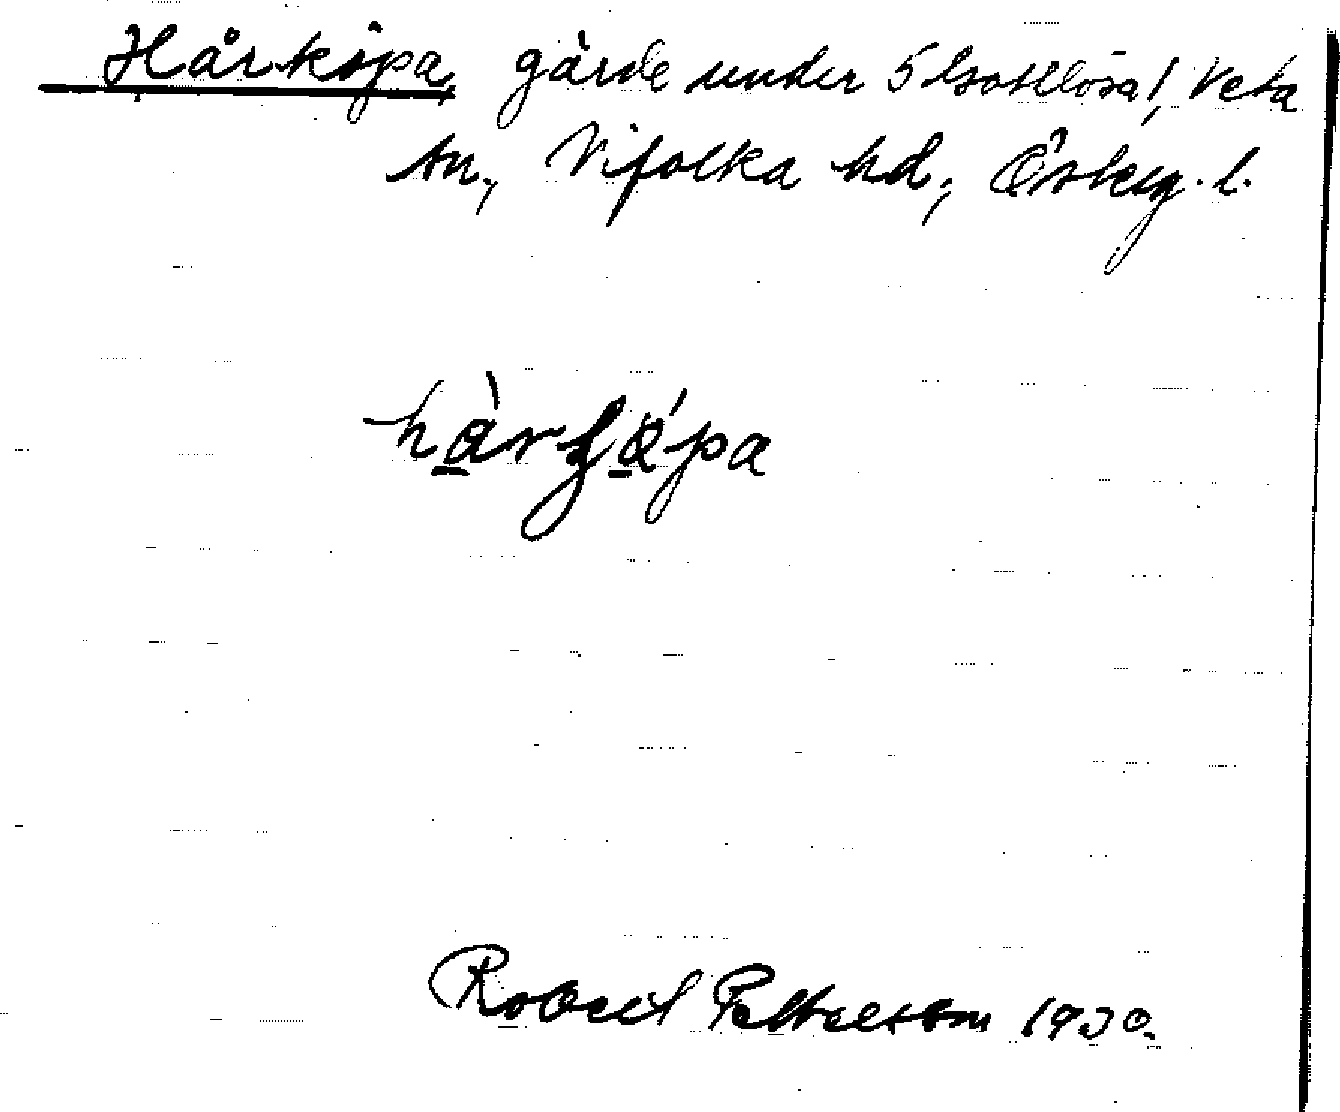 Hårköpa, gärde under 5 Skattlösa!, Veta
sn., Vifolka hd, Östg. l.
hàrkö́pa
Robert Pettersson 1930.